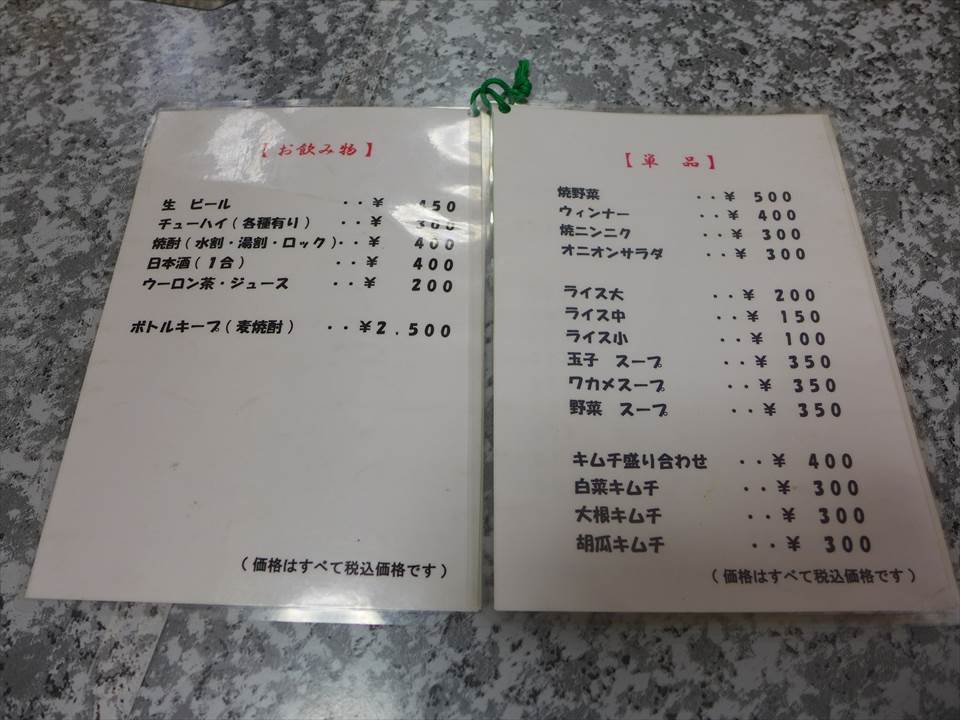 【お飲み物】
生 ビール ・・¥ 450
チューハイ(各種有り) ・・¥ 300
焼酎(水割・湯割・ロック)・・¥ 400
日本酒(1合) ・・¥ 400
ウーロン茶・ジュース ・・¥ 200
ボトルキープ(麦焼酎) ・・¥2,500
(価格はすべて税込価格です)
【単 品】
焼野菜 ・・¥ 500
ウィンナー ・・¥ 400
焼ニンニク ・・¥ 300
オニオンサラダ ・・¥ 300
ライス大 ・・¥ 200
ライス中 ・・¥ 150
ライス小 ・・¥ 100
玉子 スープ ・・¥ 350
ワカメスープ ・・¥ 350
野菜 スープ ・・¥ 350
キムチ盛り合わせ ・・¥ 400
白菜キムチ ・・¥ 300
大根キムチ ・・¥ 300
胡瓜キムチ ・・¥ 300
(価格はすべて税込価格です)